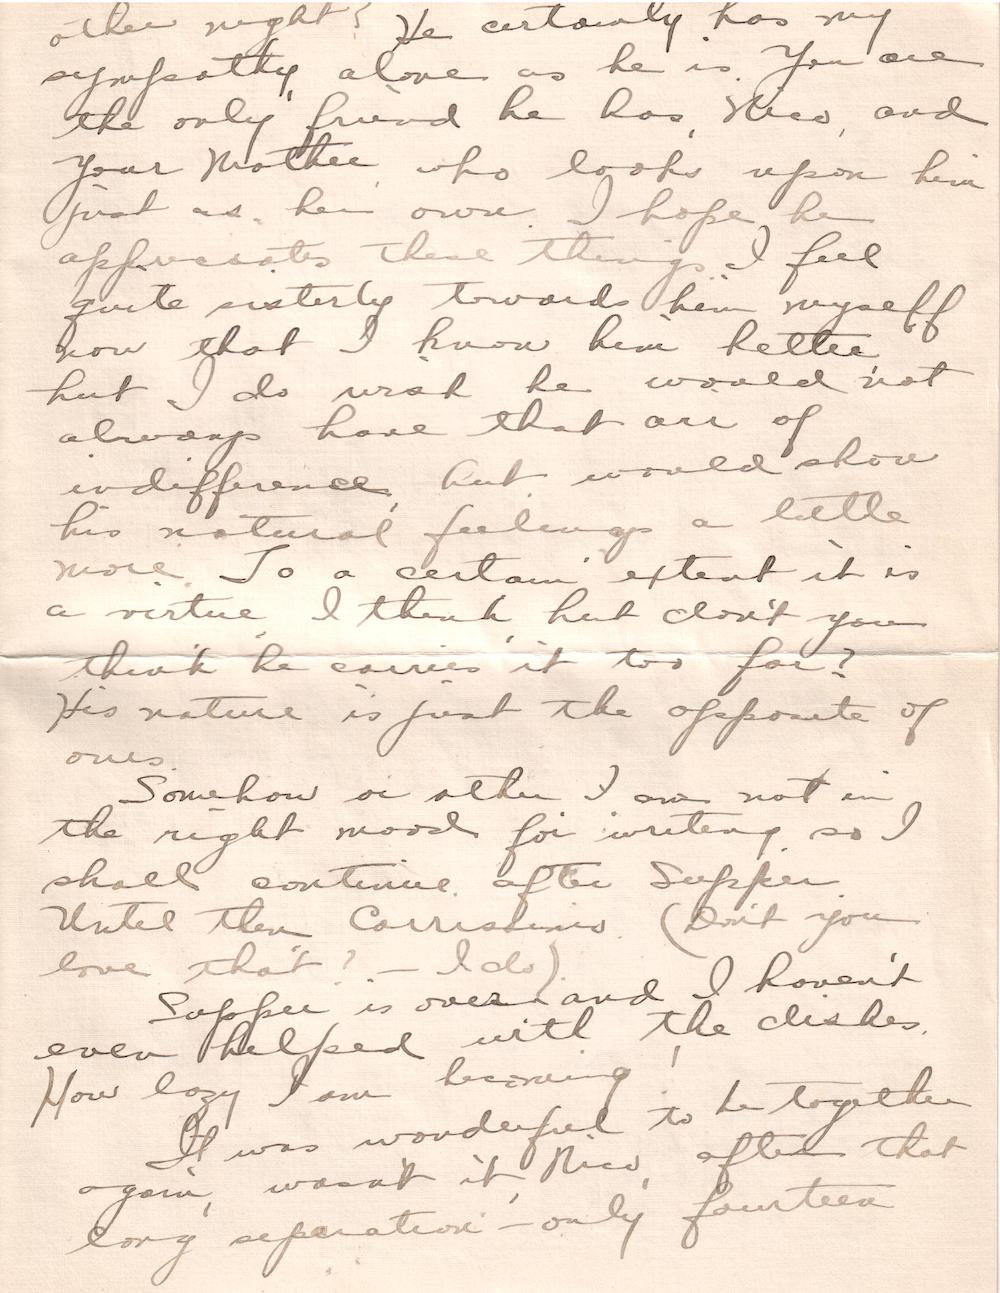 other night? He certainly has my
sympathy, alone as he is. You are
the only friend he has, Nico, and
your Mother, who looks upon him
just as her own. I hope he
appreciates these things. I feel
quite sisterly towards him myself
now that I know him better,
but I do wish he would not
always have that air of
indifference, but would show
his natural feelings a little
more. To a certain extent it is
a virtue, I think, but don't you
think he carries it too far?
His nature is just the opposite of
ours.
Somehow or other I am not in
the right mood for writing, so I
shall continue after Supper.
Until then Carrissimo. (Don't you
love that? - I do).
Supper is over and I haven't
even helped with the dishes.
How lazy I am becoming!
It was wonderful to be together
again, wasn't it, Nico, after that
long seperation - only fourteen